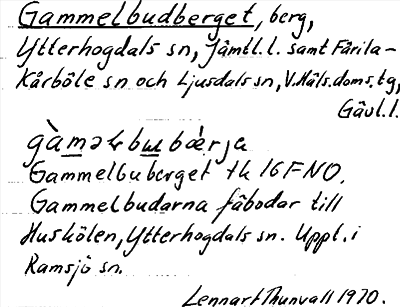 Gammelbudberget, berg,
Ytterhogdals sn, Jämtl.l. samt Färila-
Kårböle sn och Ljusdals sn, V.Häls.doms.tg,
Gävl.l.
gàməɫbɯbǽrja
Gammelbuberget tk 16FNO.
Gammelbudarna fäbodar till
Huskölen, Ytterhogdals sn. Uppt. i
Ramsjö sn.
Lennart Thunvall 1970.